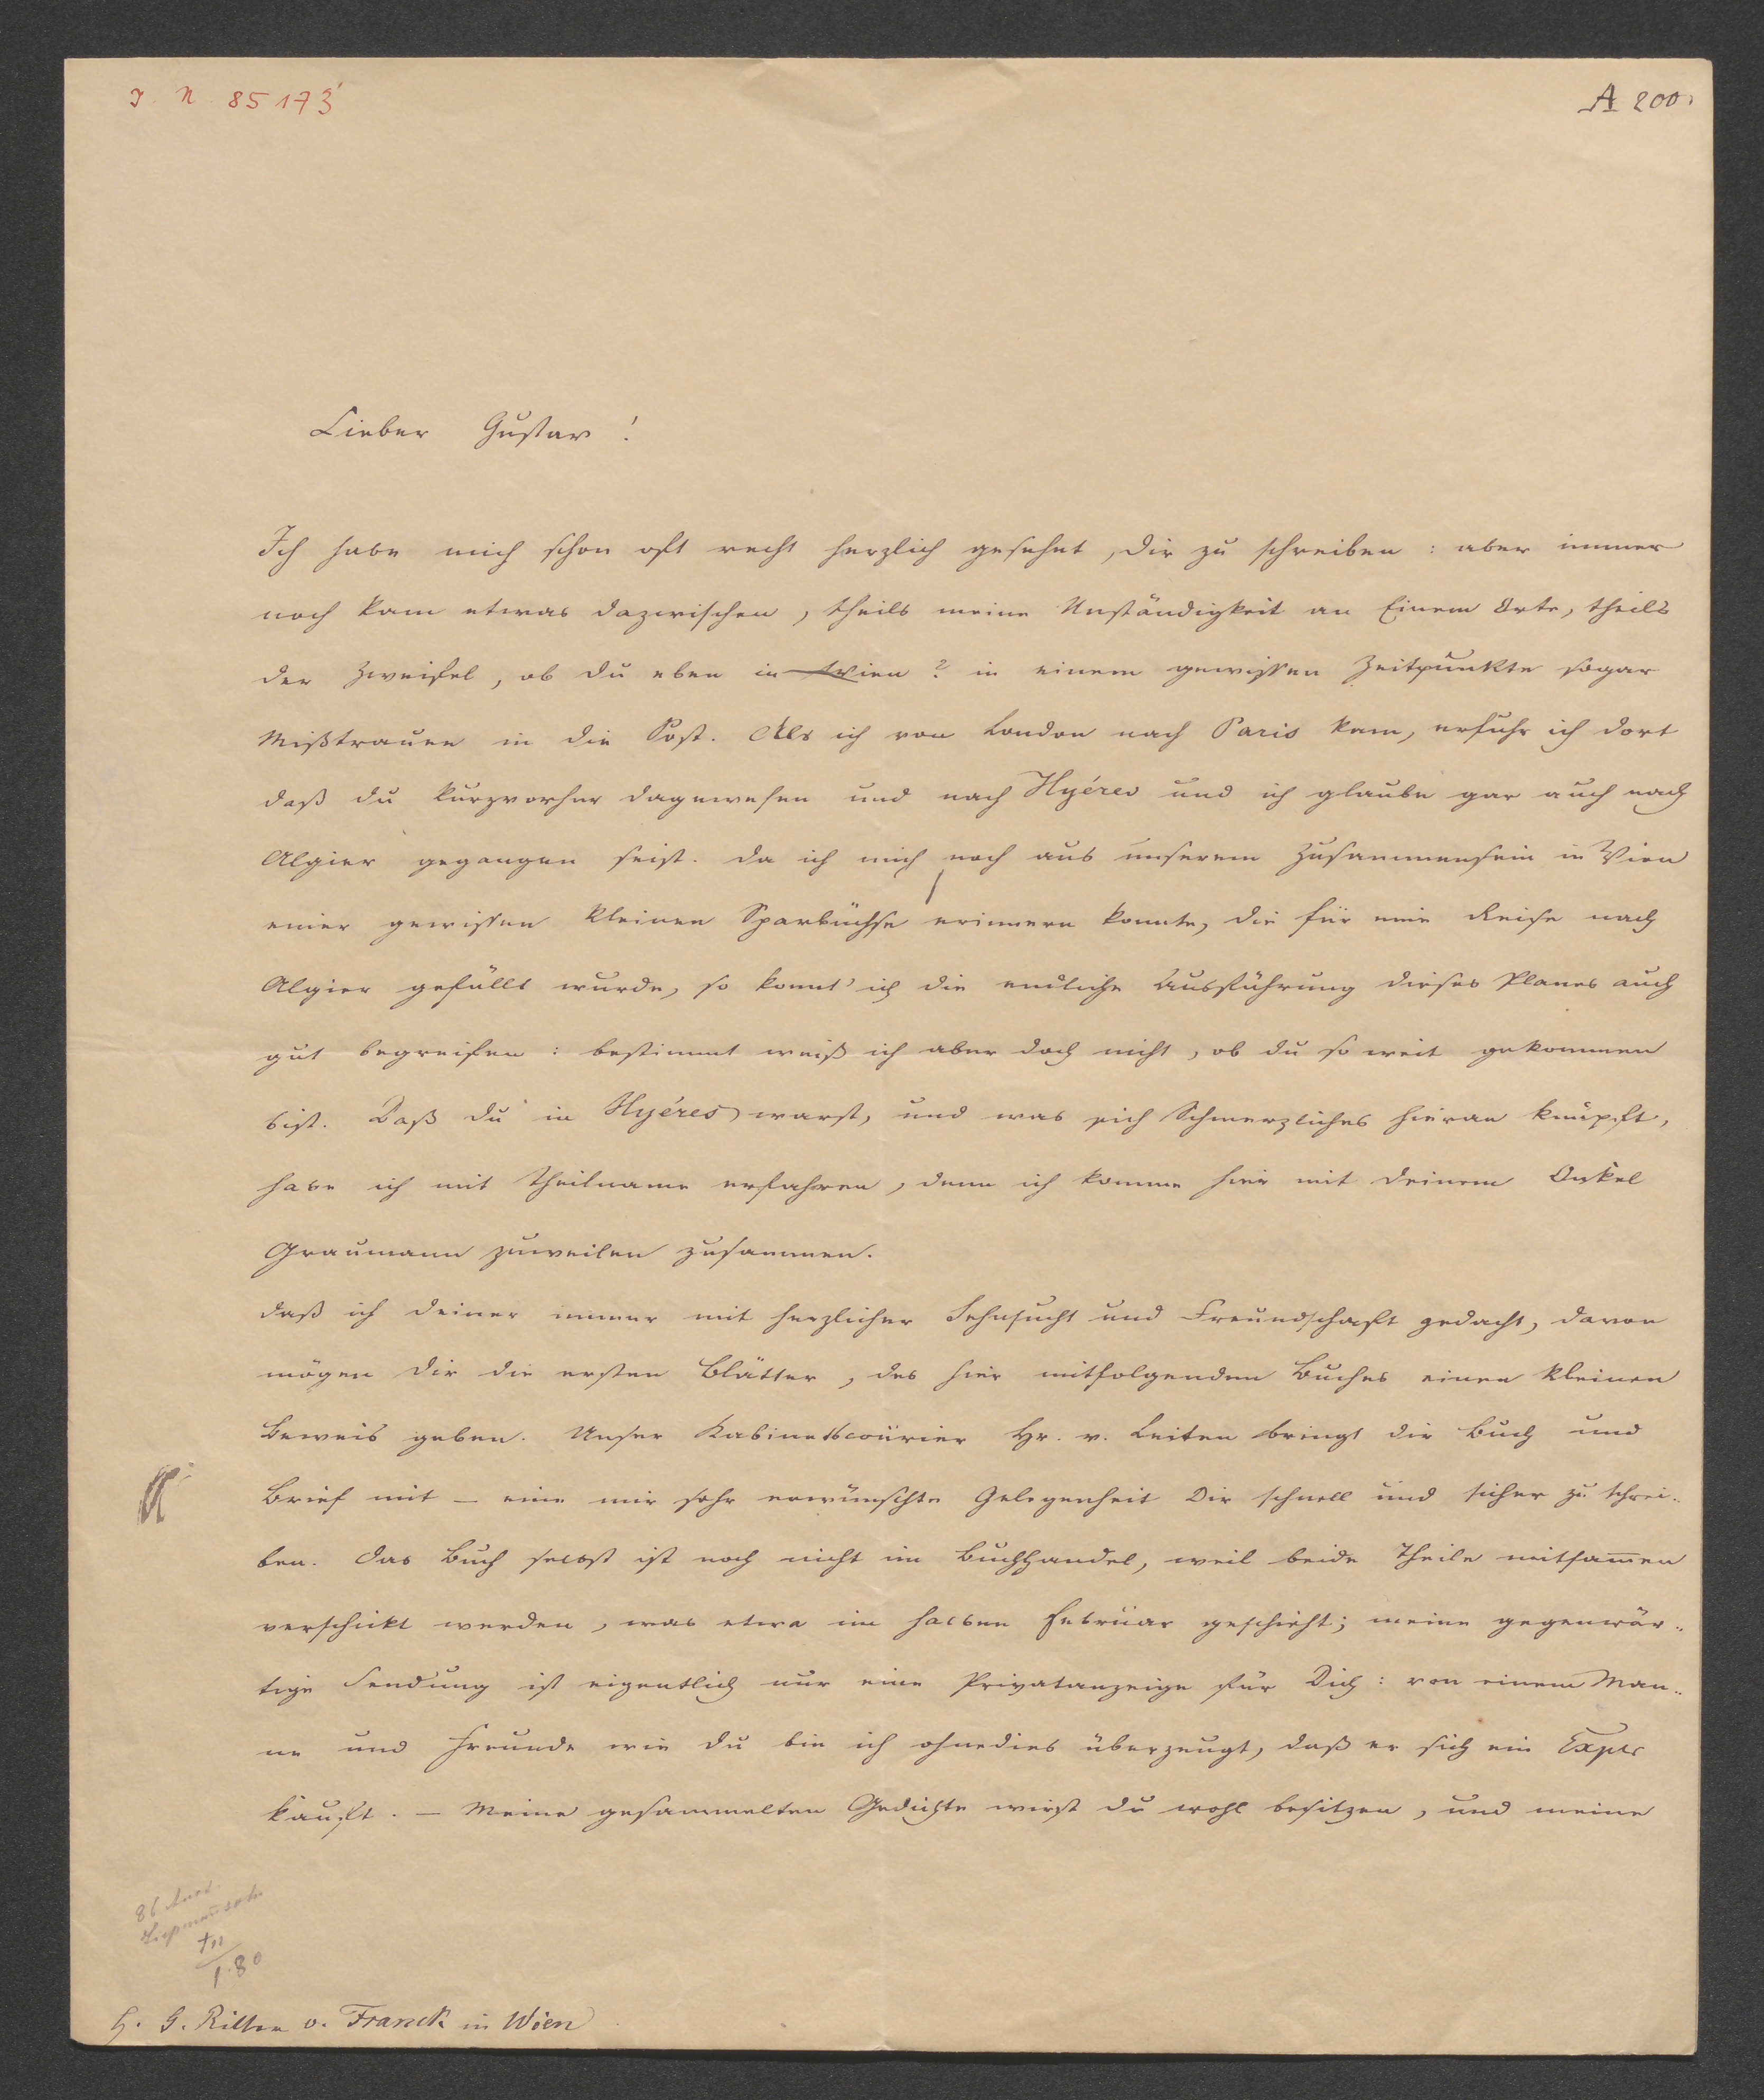 I. N. 85173
A 200.
Lieber Gustav!
Ich habe mich schon oft recht herzlich gesehnt, Dir zu schreiben: aber immer
noch kam etwas dazwischen, theils meine Unständigkeit an Einem Orte, theils
der Zweifel, ob du eben in Wien? in einem gewissen Zeitpunkte sogar
Mißtrauen in die Post. Als ich von London nach Paris kam, erfuhr ich dort
daß du kurzvorher dagewesen und nach Hyéres und ich glaube gar auch nach
Algier gegangen seist. Da ich mich noch aus unserem Zusammensein in Wien
einer gewissen kleinen Sparbüchse erinnern konnte, die für eine Reise nach
Algier gefüllt wurde, so konnt' ich die endliche Ausführung dieses Planes auch
gut begreifen: bestimmt weiß ich aber doch nicht, ob du so weit gekommen
bist. Daß du in Hyéres warst, und was sich Schmerzliches hieran knüpft,
habe ich mit Theilname erfahren, denn ich komme hier mit deinem Onkel
Graumann zuweilen zusammen.
Daß ich deiner immer mit herzlicher Sehnsucht und Freundschaft gedacht, davon
mögen dir die ersten Blätter, des hier mitfolgenden Buches einen kleinen
Beweis geben. Unser Kabinetscourier Hr. v. Leiten bringt dir Buch und
Brief mit – eine mir sehr erwünschte Gelegenheit Dir schnell und sicher zu schrei-
ben. Das Buch selbst ist noch nicht im Buchhandel, weil beide Theile mitsam̅en
verschickt werden, was etwa im halben Februar geschieht; meine gegenwär-
tige Sendung ist eigentlich nur eine Privatanzeige für Dich: von einem Man-
ne und Freunde wie du bin ich ohnedies überzeugt, daß er sich ein Expl
kauft. – Meine gesammelten Gedichte wirst du wohl besitzen, und meine
86
1.80
H. G. Ritter v. Franck in Wien